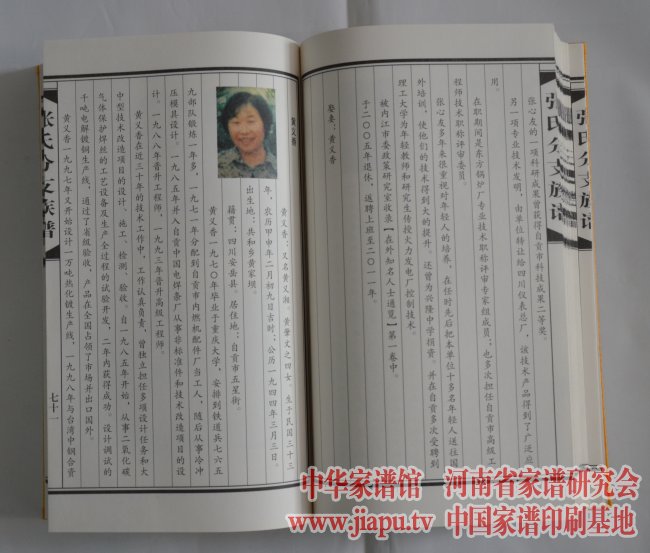 张氏分支族谱
张氏分支族谱
张心友的一项科研成果曾获得自贡市科技成果二等奖。
另一项专业技术发明，由单位转让给四川仪表总厂，该技术产品得到了广泛应
用。
在职期间是东方锅炉厂专业技术职称评审专家组成员，也多次担任自贡市高级工
程师技术职称评审委员。
张心友多年来很重视对年轻人的培养，在任时先后把本单位十多名年轻人送往国
外培训，使他们的技术得到大的提升。还曾为兴隆中学捐资，并在自贡多次受聘到
理工大学为年轻教师和研究生传授火力发电厂控制技术。
被内江市委政策研究室收录【在外知名人士通览】第一卷中。
于二〇〇五年退休，返聘上班至二〇一一年。
娶妻：黄义香
黄义香
黄义香：又名黄义湘。黄肇文之四女。生于民国三十三
年，农历甲申年二月初九日吉时；公历一九四四年三月三日。
出生地：共和乡黄家坝。
籍贯：四川安岳县。居住地：自贡市五星街。
黄义香一九七〇年毕业于重庆大学，安排到铁道兵七六五
九部队锻炼一年多，一九七一年分配到自贡市内燃机配件厂当工人，随后从事冷冲
压模具设计。一九八五年并入自贡中国电焊条厂从事非标准件和技术改造项目的设
计。一九八八年晋升工程师，一九九三年晋升高级工程师。
黄义香在近三十年的技术工作中，工作认真负责，曾独立担任多项设计任务和大
中型技术改造项目的设计、施工、检测、验收。自一九八五年开始，从事二氧化碳
气体保护焊丝的工艺设备及生产全过程的试验开发，二年内获得成功。设计调试的
千吨电解镀铜生产线，通过了省级验收，产品在全国占领了市场并出口国外。
黄义香一九九七年又开始设计一万吨热化镀生产线，一九九八年与台湾中钢合资
七十一
张氏分支族谱
中华家谱馆 河南省家谱研究会
www.jiapu.tv 中国家谱印刷基地